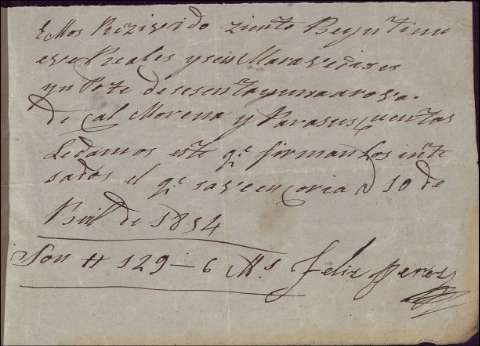 Emos Rezivido ziento Beynti nu
eve Reales y seis Maravedises
ymPote de sesenta y una arova
de Cal Morena y Para sus quentas
Ledamos este qe firman Los inte
sados el qe save en Coria a 10 de
Bril de 1854
Son # 129 - 6 Ms Feliz Perez